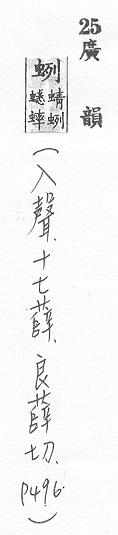 25廣韻
蛚
蜻蛚
蟋蟀
(入聲.十七薛.良薛切.P496.)